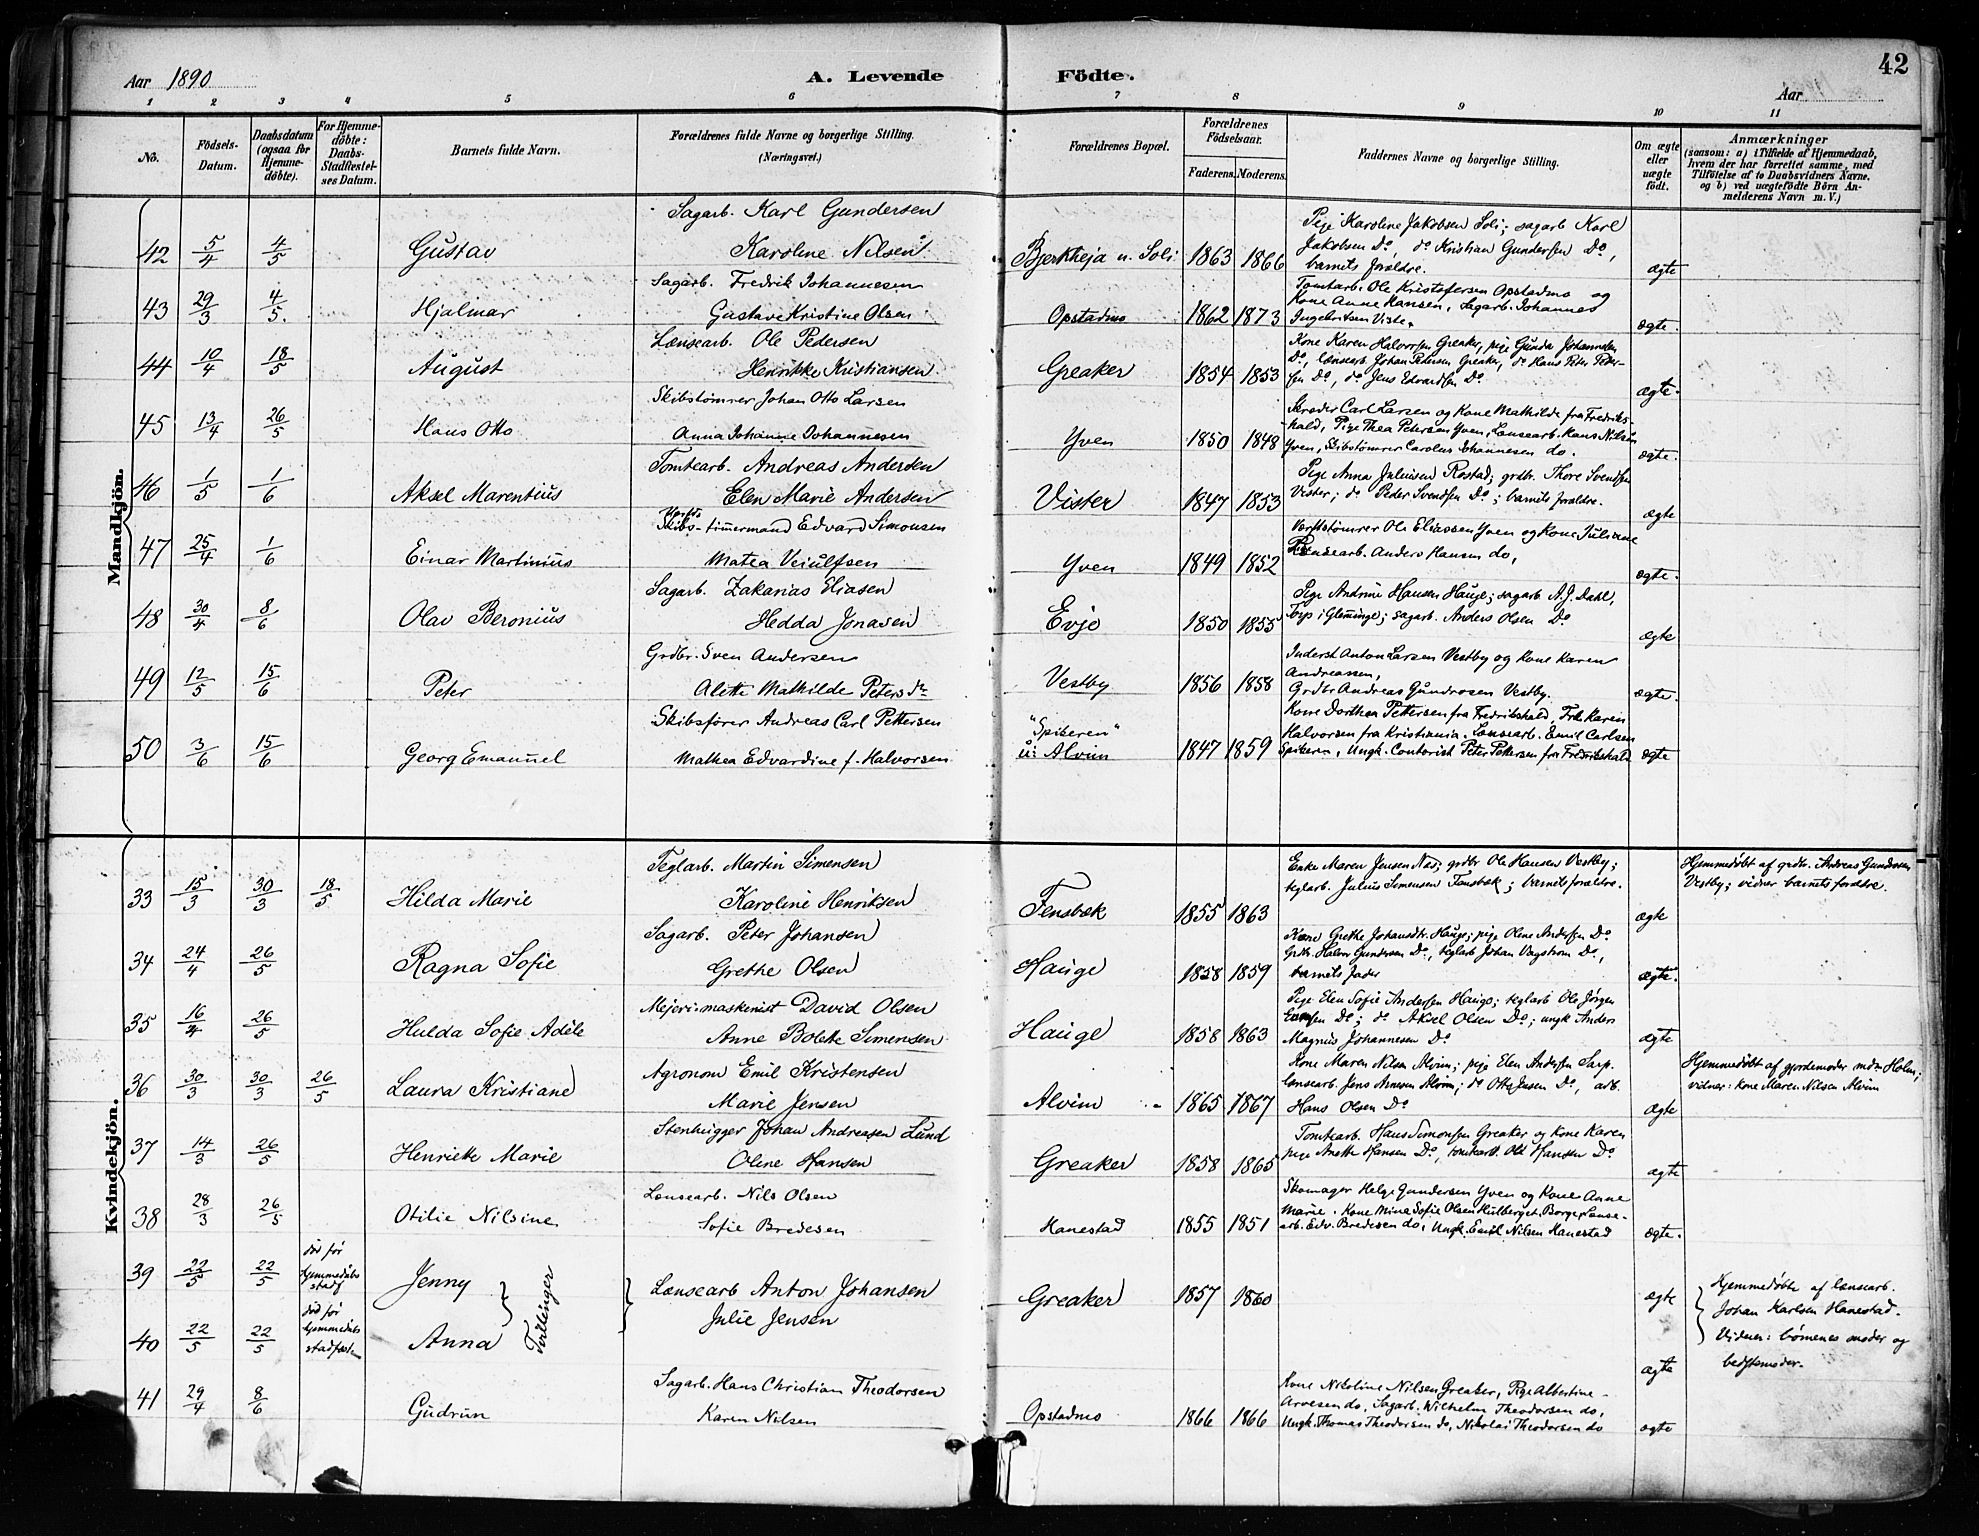 Aar 1890
A. Levende Födte.
42
Aar
1 2 3 4 5 6 7 8 9 10 11
No.
Födsels-Datum.
Daabsdatum (ogsaa for Hjemme-döbte).
For Hjemme-döbte: Daabs-Stadfæstel-ses Datum.
Barnets fulde Navn.
Forældrenes fulde Navne og borgerlige Stilling. (Næringsvei.)
Forældrenes Bopæl.
Forældrenes Födselsaar.
Faderens. Moderens.
Faddernes Navne og borgerlige Stilling.
Om ægte eller uægte födt.
Anmærkninger
(saasom: a) i Tilfælde af Hjemmedaab,
hvem der har forrettet samme, med
Tilföielse af to Daabsvidners Navne.
og b) ved uægtefödte Börn An-
melderens Navn m. V.)
Mandkjön.
42 5/4 4/5 Gustav
Sagarb. Karl Gundersen
Karoline Nilsen
Bjerkheja u. Soli 1863 1866
Pige Karoline Jakobsen Soli; sagarb Karl
Jakobsen Do, do Kristian Gundersen Do,
barnets forældre.
ægte
43 29/3 4/5. Hjalmar
Sagarb. Fredrik Johannesen
Gustave Kristine Olsen
Opstadmo 1862 1873
Tomtarb. Ole Kristofersen Opstadmo og
Kone Anne Hansen, Sagarb. Johannes
Ingebretsen Viste.
ægte.
44 10/4 18/5 August
Lænsearb. Ole Pedersen
Henrikke Kristiansen
Greaker 1854 1853
Kone Karen Halvorsen Greaker, pige Gunda Johannesen
Do, lænsearb. Johan Petersen Greaker, do Hans Peter Peder-
sen Do, do Jens Edvardsen Do
ægte.
45 13/4 26/5 Hans Otto
Skibstømrer Johan Otto Larsen
Anna Johanne Johannesen
Yven 1850 1848
Skræder Carl Larsen og Kone Mathilde fra Fredriks-
hald, Pige Thea Petersen Yven, Lænsearb. Hans Nilsen
Yven, Skibstømrer Carolus Johannesen do.
ægte.
46 1/5 1/6 Aksel Marentius
Tomtearb. Andreas Andersen
Elen Marie Andersen
Vister 1847 1853
Pige Anna Juliusen Rostad; grdbr. Thore Svendsen
Vister; do Peder Svendsen Do; barnets forældre.
ægte
47 25/4 1/6 Einar Martinius
Skibs-timmermand Edvard Simonsen
Matea Veiulfsen
Yven 1849 1852
Verftstømrer Ole Eliassen Yven og Kone Juliane
Lænsearb. Anders Hansen do,
ægte.
48 30/4 8/6 Olav Beronius
Sagarb. Zakarias Eliasen
Hedda Jonasen
Evjo 1850 1855
Pige Andrine Hansen Hauge; sagarb A.J. Dahl,
Torp i Glemminge; sagarb. Anders Olsen Do
ægte
49 12/5 15/6 Peter
Grdbr. Sven Andersen
Alette Mathilde Petersdr
Vestby 1856 1858
Inderst Anton Larsen Vestby og Kone Karen
Andreassen,
Grdbr Andreas Gundrosen Vestby.
ægte.
50 3/6 15/6 Georg Emanuel
Skibsfører Andreas Carl Pettersen
Mathea Edvardine f. Halvorsen
"Spikeren"
u: Alvim 1847 1859
Kone Dorthea Pettersen fra Fredrikshald, Frk Karin
Halvorsen fra Kristiania. Lænsearb. Emil Carlsen
Spikeren, Ungk. Contorist Peter Pettersen fra Fredrikshald
ægte
Kvindekjön.
33 15/3 30/3 18/5 Hilda Marie
Teglarb. Martin Simensen
Karoline Henriksen
Fensbæk 1855 1863
Enke Maren Jensen Næs; grdbr Ole Hansen Vestby;
teglarb. Julius Simensen Fensbæk; barnets forældre.
ægte
Hjemmedøbt af grdbr. Andreas Gundrosen
Vestby; vidner barnets forældre.
34 24/4 26/5 Ragna Sofie
Sagarb. Peter Johansen
Grethe Olsen
Hauge 1858 1859
Kone Grethe Johansdtr. Hauge; pige Olene Andersen Do
Grdbr. Halvor Gundersen Do, teglarb Johan Vagstrom Do,
barnets fader
ægte.
35 16/4 26/5 Hulda Sofie Adéle
Mejeri-maskenist David Olsen
Anne Bolette Simensen
Hauge 1858 1863
Pige Elen Sofie Andersen Hauge; teglarb Ole Jørgen
Do; do Aksel Olsen Do; ungk Anders
Magnus Johannesen Do
ægte
36 30/3 30/3 26/5 Laura Kristiane
Agronom Emil Kristensen
Marie Jensen
Alvim 1865 1867
Kone Maren Nilsen Alvim; pige Elen Andersen Sarp.
lænsearb. Jens Arnesen Alvim; do Otto Jensen Do, arb.
Hans Olsen Do
ægte
Hjemmedøbt af gjordemoder mdm Holm;
vidner: kone Maren Nilsen Alvim
37 14/3 26/5 Henriette Marie
Stenhugger Johan Andreasen Lund
Oline Hansen
Greaker 1858 1865
Tomtearb. Hans Simonsen Greaker og Kone Karen
pige Anette Hansen Do, tomtearb. Ole Hansen Do
ægte
38 28/3 26/5 Otilie Nilsine
Lænsearb. Nils Olsen
Sofie Bredesen
Hanestad 1855 1851
Skomager Helge Gundersen Yven og Kone Anne
Marie. Kone Mina Sofie Olsen Hulberget, Borge, Lænse-
arb. Edv. Bredesen do, Ungk. Emil Nilsen Hanestad
ægte.
39 22/5 22/5 død før hjemmedaabs stadf Jenny
40 22/5 22/5 død før hjemmedaabs stadfæst Anna
Tvillinger
Lænsearb Anton Johansen
Julie Jensen
Greaker 1857 1860
ægte
ægte
Hjemmedøbte af lænsearb.
Johan Karlsen Hanestad.
Vidner: børnenes moder og
bedstemoder.
41 29/4 8/6 Gudrun
Sagarb. Hans Christian Theodorsen
Karen Nilsen
Opstadmo 1866 1866
Kone Nikoline Nilsen Greaker, Pige Albertine
Arvesen do, Sagarb. Wilhelm Theodorsen do,
Ungk. Thomas Theodorsen do, Nikolai Theodorsen do
ægte